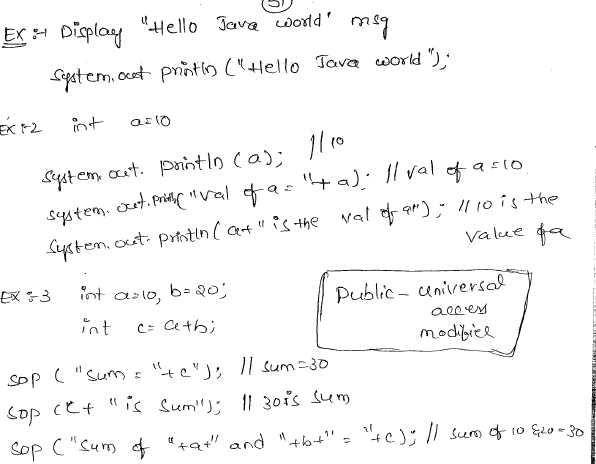 51
EX :-1 Display "Hello Java world' msg
System.out println ("Hello Java world");
EX :-2 int a=10
System. out. println (a); //10
System. out. println("val of a = "+a); // val of a=10
System. out. println(a+" is the val of a"); // 10 is the
value of a
EX :-3 int a=10, b=20;
int c= a+b;
Public - universal
access
modifier
SOP ("Sum = "+c"); // sum=30
SOP (c+ "is Sum"); // 30 is sum
SOP ("Sum of "+a+" and "+b+" = "+c); // sum of 10 &20=30